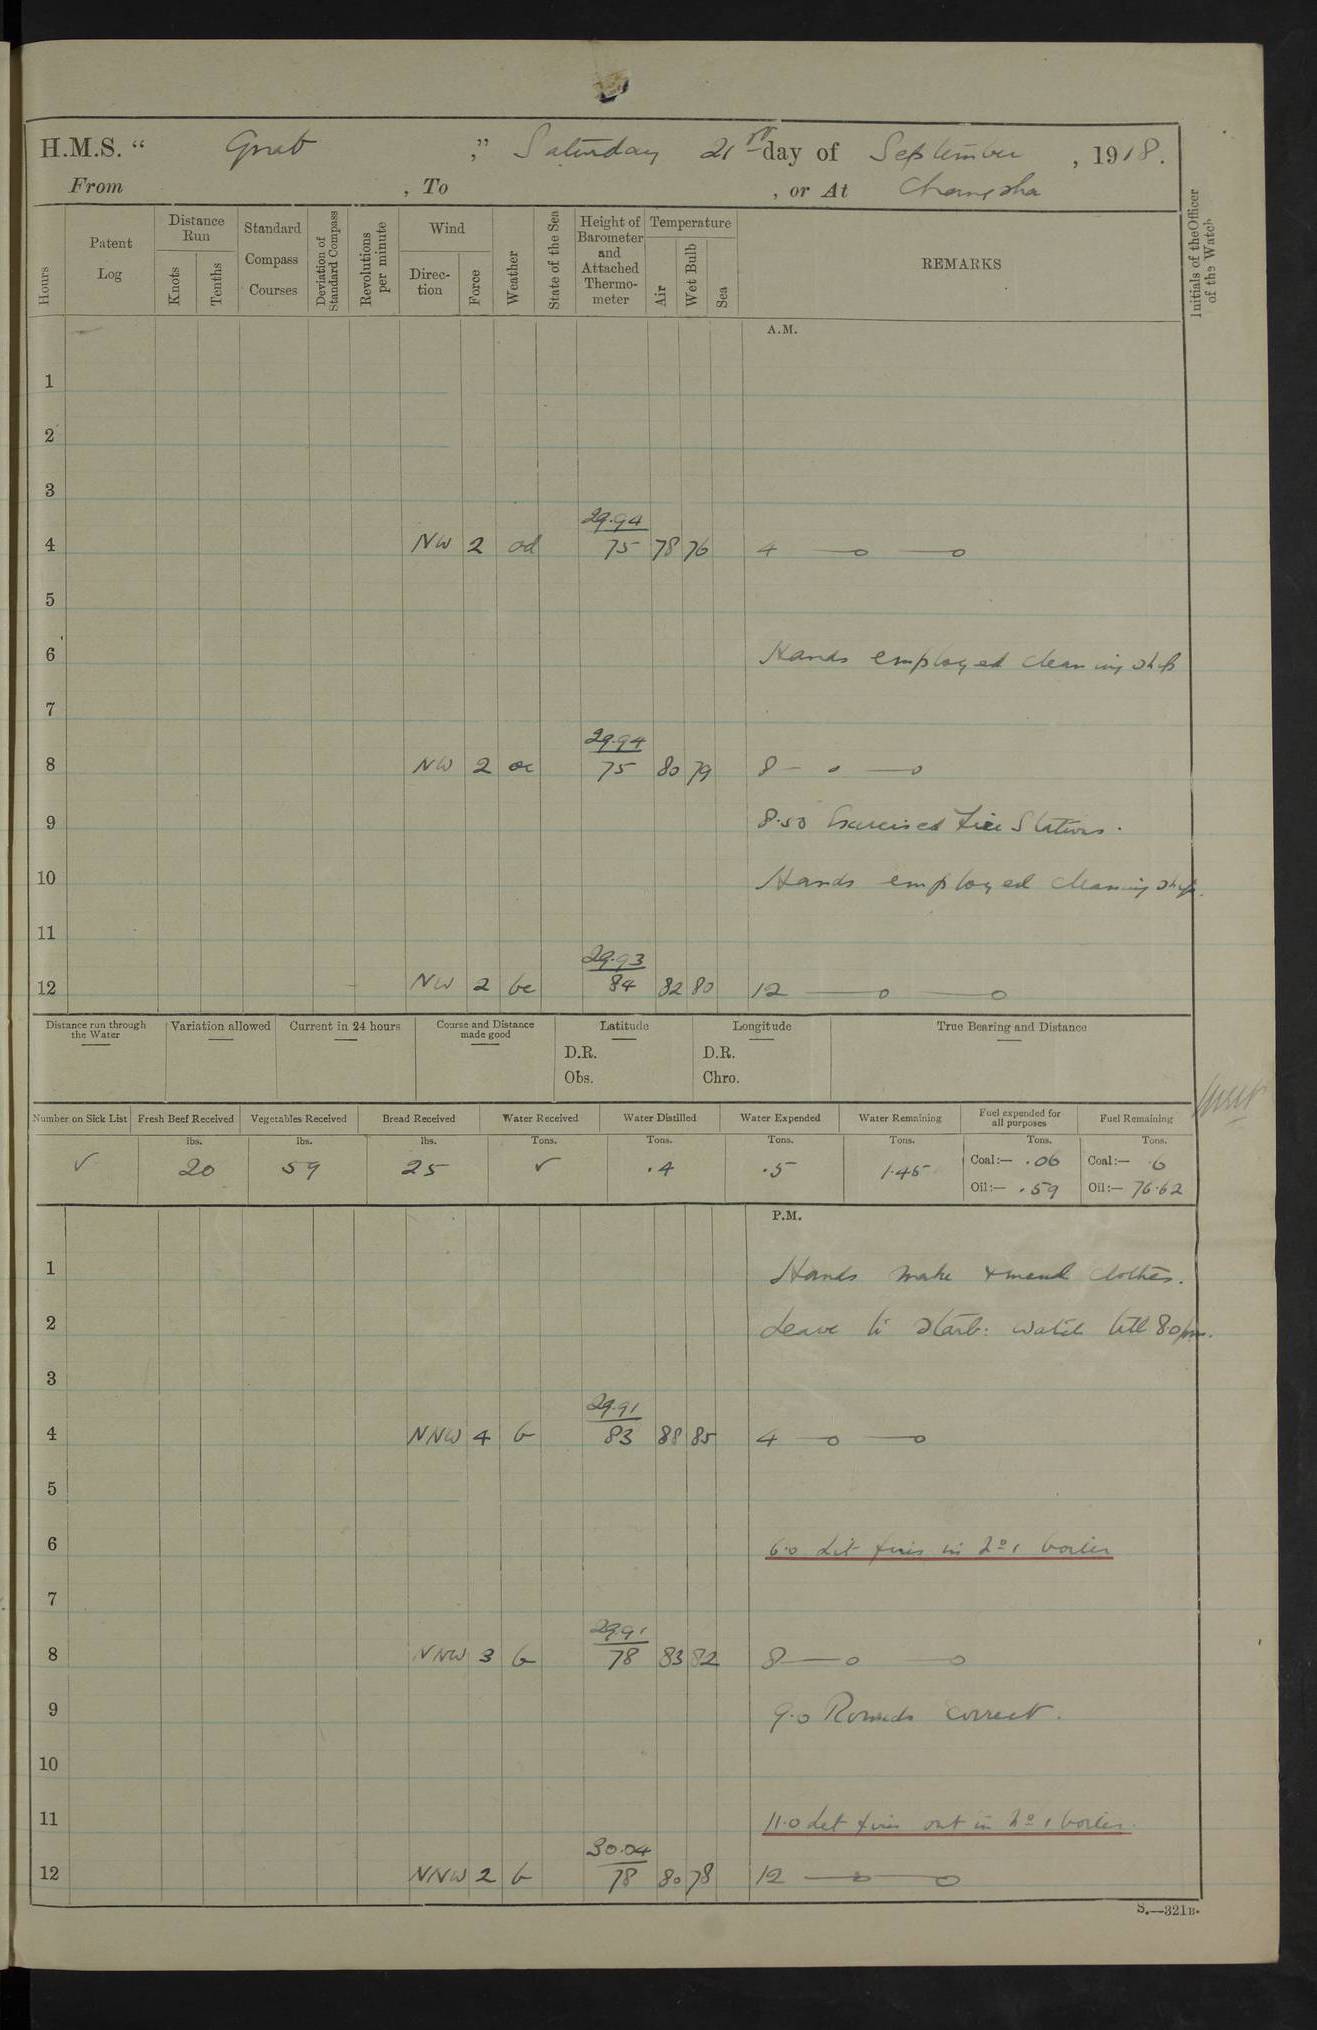 H.M.S. “ Gnat ,” Saturday 21st day of September , 1918.
From , To , or At Changsha
Hours
Patent Log
Distance Run
Knots
Tenths
Standard Compass Courses
Deviation of Standard Compass
Revolutions per minute
Wind
Direc-tion
Force
Weather
State of the Sea
Height of Barometer and Attached Thermo-meter
Temperature
Air
Wet Bulb
Sea
REMARKS
Initials of the Officer of the Watch
A.M.
1
2
3
29.94
4 NW 2 od 75 78 76 4 —o —o
5
6 Hands employed cleaning ship
7
29.94
8 NW 2 oc 75 80 79 8 — o —o
9 8.50 Exercised Fire Stations.
10 Hands employed cleaning ship.
11
29.93
12 NW 2 bc 84 82 80 12 —o —o
Distance run through the Water
Variation allowed
Current in 24 hours
Course and Distance made good
Latitude
Longitude
True Bearing and Distance
D.R. D.R.
Obs. Chro.
Number on Sick List Fresh Beef Received Vegetables Received Bread Received Water Received Water Distilled Water Expended Water Remaining Fuel expended for all purposes Fuel Remaining
lbs. lbs. lbs. Tons. Tons. Tons. Tons. Tons. Tons.
√ 20 59 25 √ .4 .5 1.45 Coal:— .06 Coal:— .6
Oil:— .59 Oil:— 76.62
P.M.
1 Hands make & mend clothes.
2 Leave to Starb: watch till 8.0pm.
3
29.91
4 NNW 4 b 83 88 85 4 —o —o
5
6 6.0 Lit fires in No 1 boiler
7
29.91
8 NNW 3 b 78 83 82 8 —o —o
9 9.0 Rounds correct.
10
11 11.0 Let fires out in No 1 boiler.
30.04
12 NNW 2 b 78 80 78 12 —o —o
S.—321B.